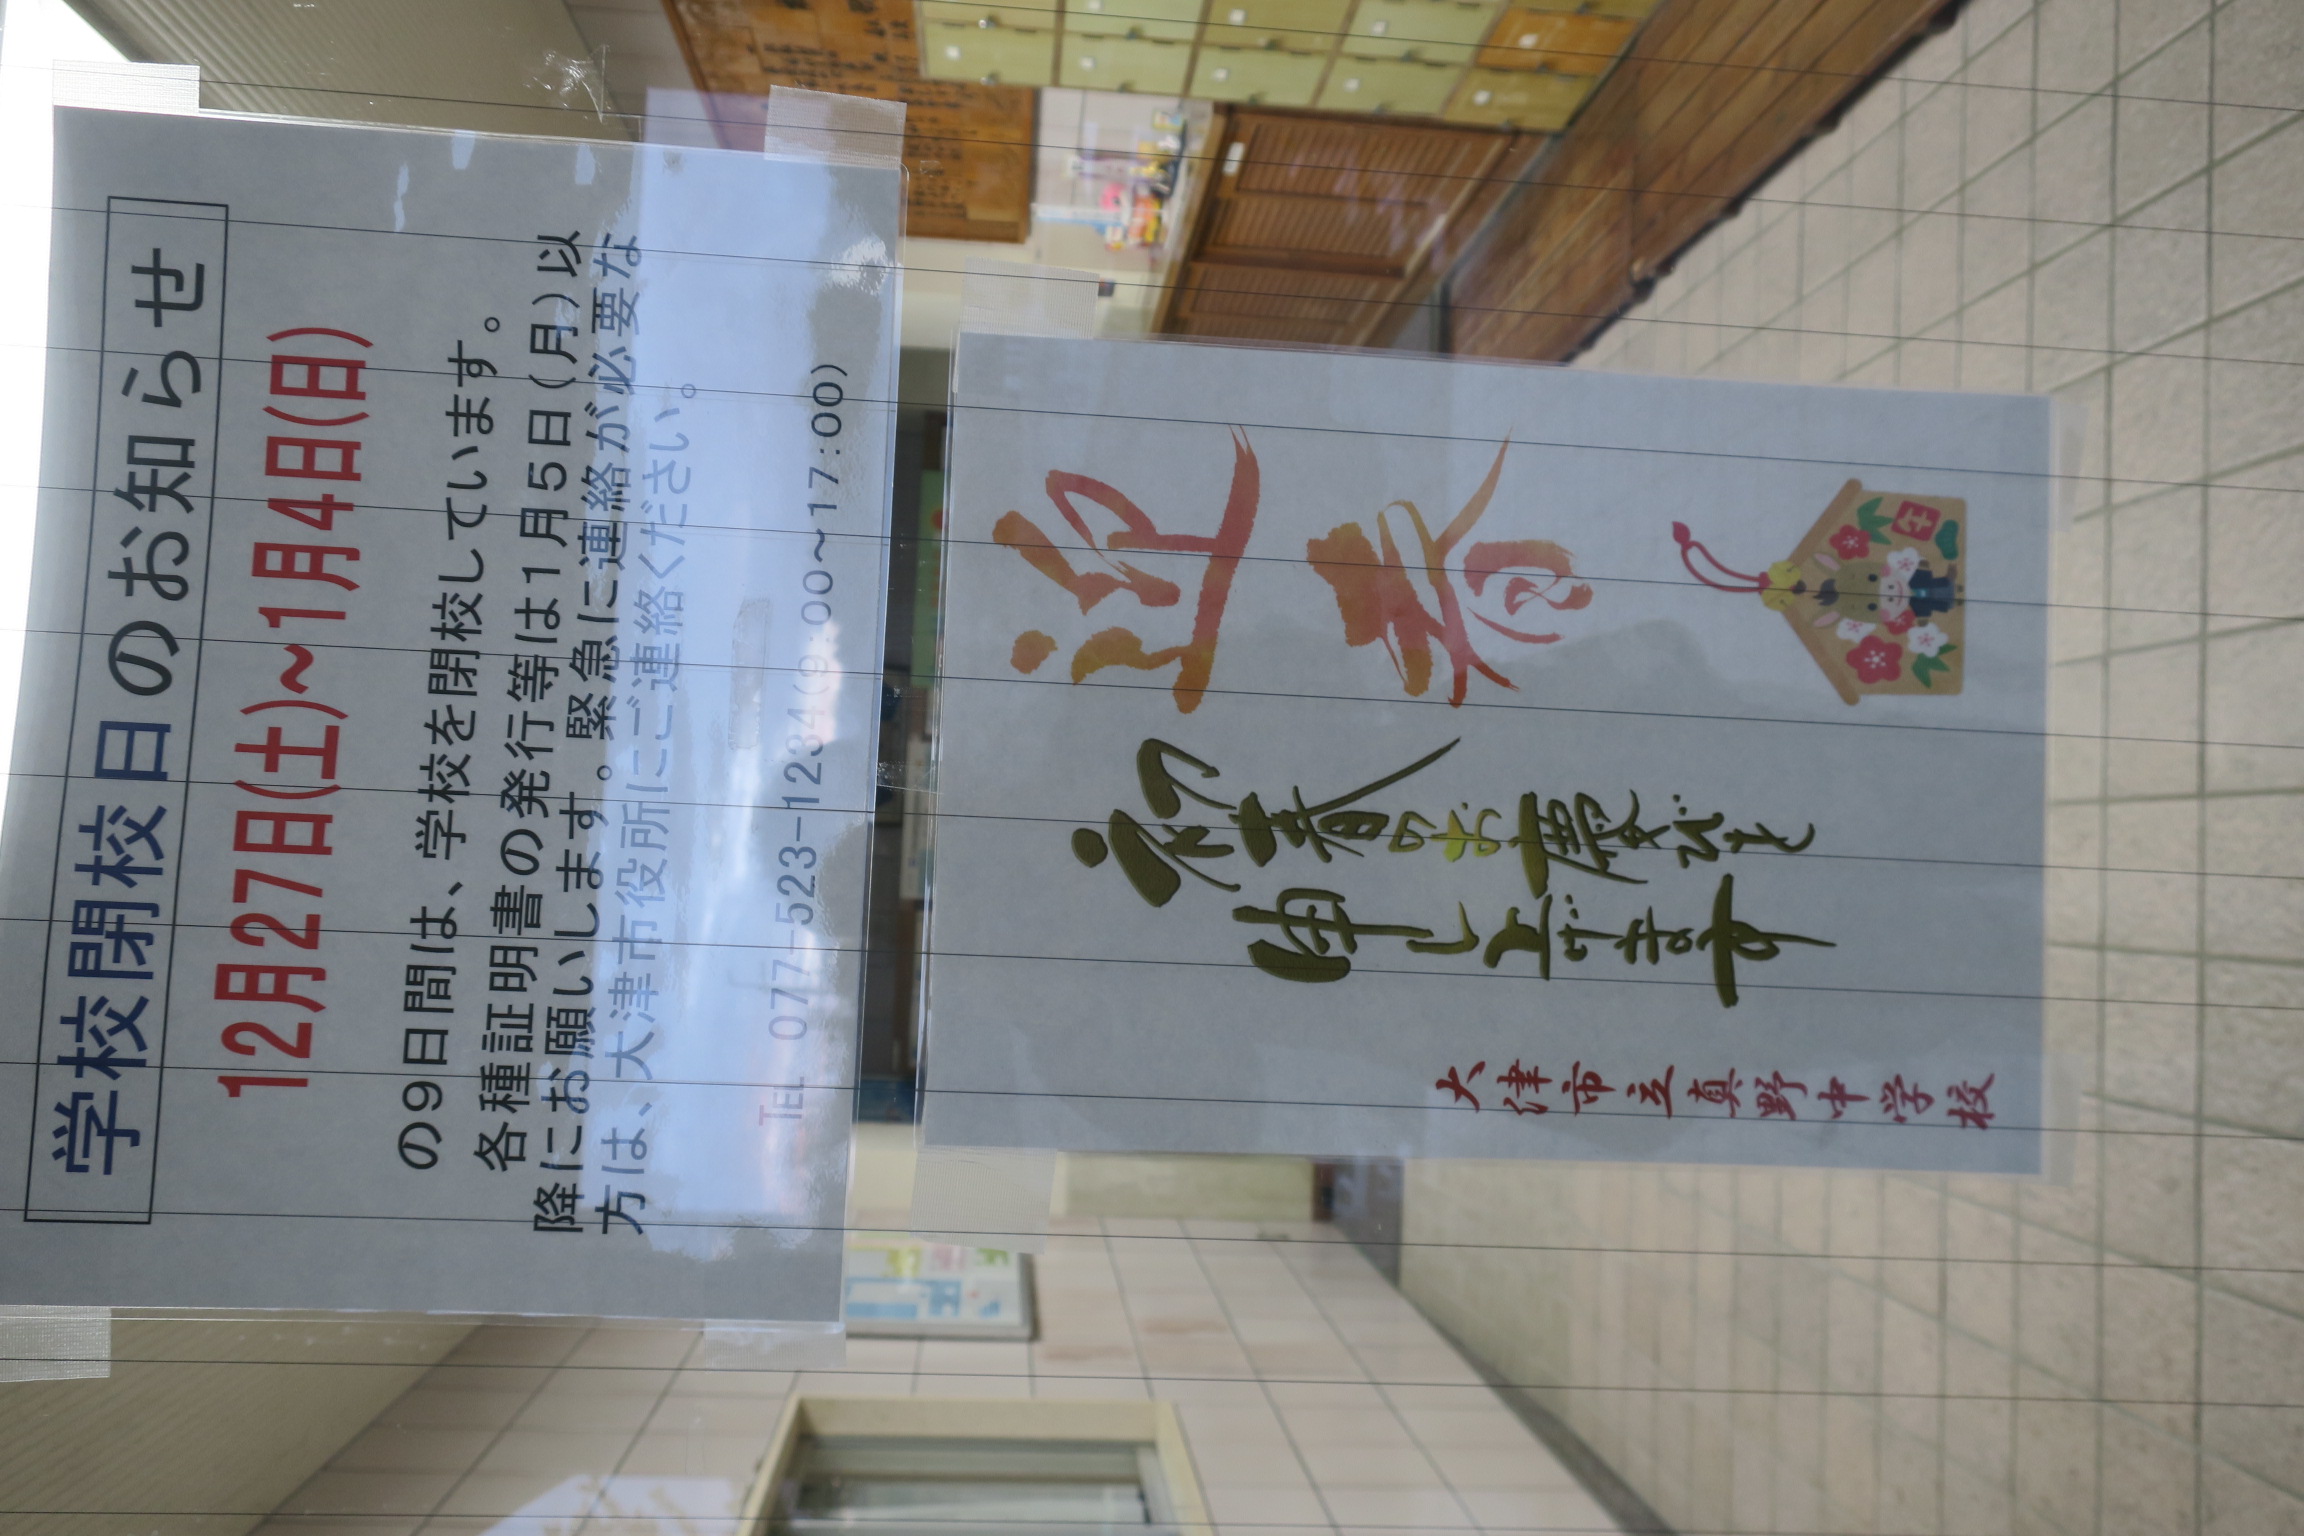 学校閉校日のお知らせ
12月27日(土)～1月4日(日)
の９日間は、学校を閉校しています。
各種証明書の発行等は１月５日(月)以
降にお願いします。緊急に連絡が必要な
方は、大津市役所にご連絡ください。
TEL 077-523-1234(9:00～17:00)
迎春
初春のお慶びを
申し上げます
大津市立真野中学校